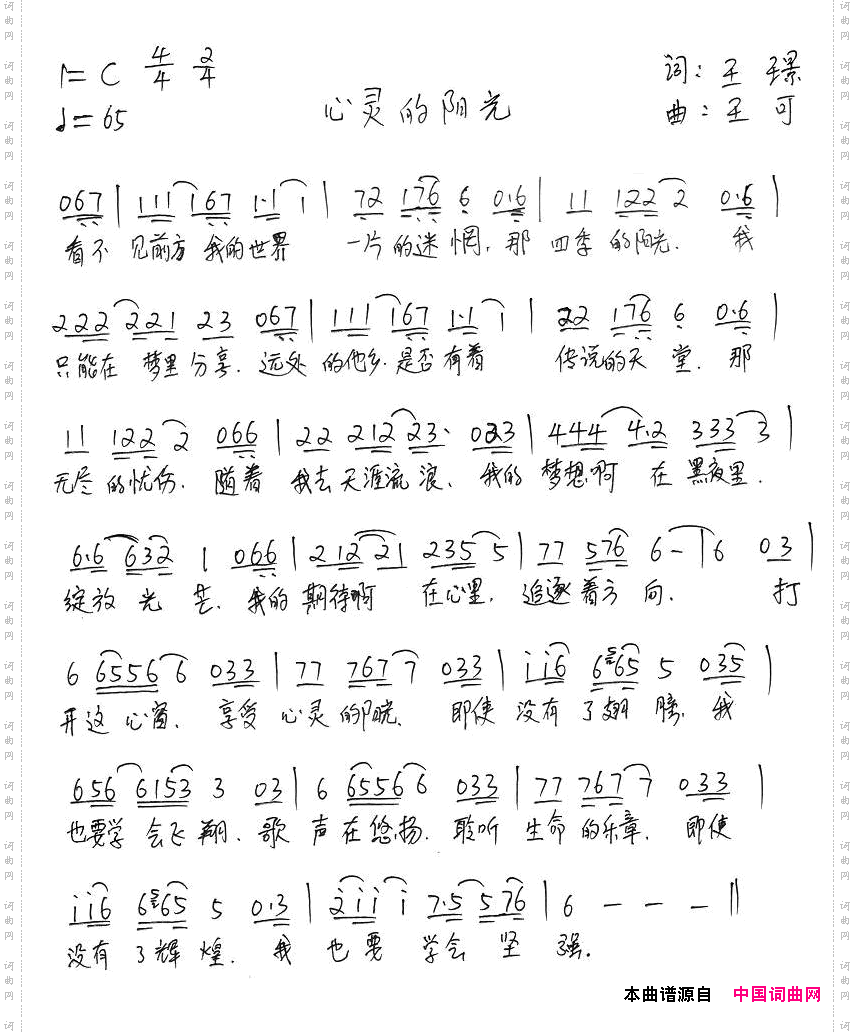 1=C 4/4 2/4
♩=65
心灵的阳光
词：王 璟
曲：王 可
067 | 111 167 1·1 1 | 72 176 6 0·6 | 11 122 2 0·6 |
看不 见前方 我的世界 一片的迷惘，那 四季的阳光． 我
222 221 23 067 | 111 167 1·1 1 | 22 176 6 0·6 |
只能在 梦里分享．远处 的他乡．是否有着 传说的天 堂．那
11 122 2 066 | 22 212 23· 023 | 444 4·2 333 3 |
无尽的忧伤． 随着 我去天涯流浪、我的 梦想啊 在 黑夜里．
6·6 632 1 066 | 212 21 235 5 | 77 576 6 - | 6 03 |
绽放光 芒．我的 期待啊 在心里，追逐着方 向． 打
6 6556 6 033 | 77 767 7 033 | i i6 6 65 5 035 |
开这 心窗． 享受 心灵的阳晓． 即使 没有 了翅 膀，我
656 6153 3 03 | 6 6556 6 033 | 77 767 7 033 |
也要学 会飞翔．歌 声在悠扬．聆听 生命的乐章． 即使
i i6 6 65 5 0·3 | 2 i i i i 7·5 576 | 6 - - - ‖
没有 了辉 煌． 我 也 要 学会 坚 强．
本曲谱源自 中国词曲网
词曲网